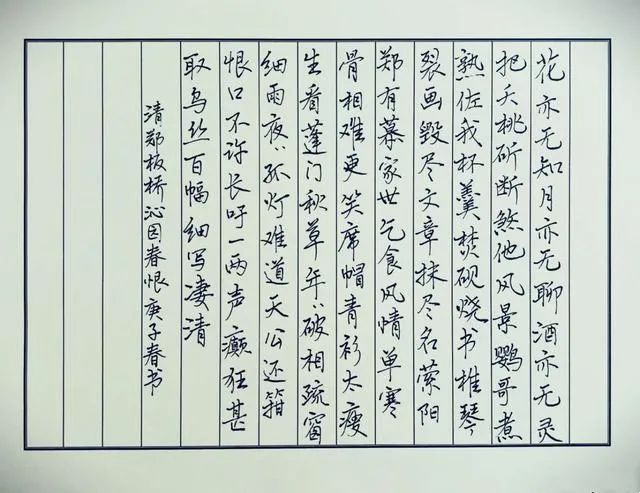 花亦无知月亦无聊酒亦无灵
把夭桃斫断煞他风景鹦哥煮
熟佐我杯羹焚砚烧书椎琴
裂画毁尽文章抹尽名荥阳
郑有慕家世乞食风情单寒
骨相难更笑席帽青衫太瘦
生看蓬门秋草年〻破相疏窗
细雨夜〻孤灯难道天公还箝
恨口不许长吁一两声癫狂甚
取乌丝百幅细写凄清
清郑板桥沁园春恨庚子春书